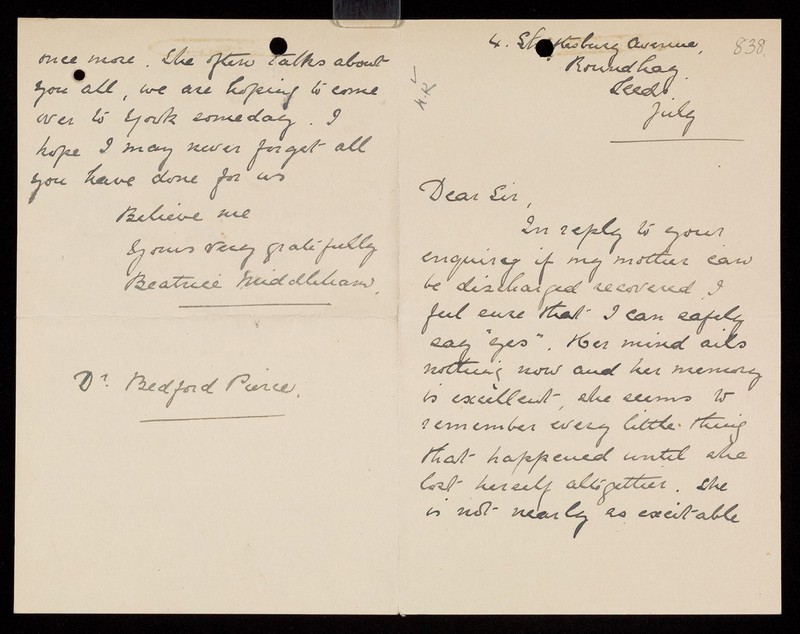 once more. She often talks about
you all, we are hoping to come
over to York someday. I
hope I may never forget all
you have done for us
Believe me
Yours very gratefully
Beatrice Middleham.
Dr. Bedford Pierce.
4. Shaftesbury Avenue,
838.
Roundhay.
Leeds
July
Dear Sir,
In reply to your
enquirey if my mother can
be discharged recovered I
feel sure that I can safely
say "yes". Her mind ails
nothing now and her memory
is excellent, she seems to
remember every little thing
that happened until she
lost herself altogether. She
is not nearly as excitable